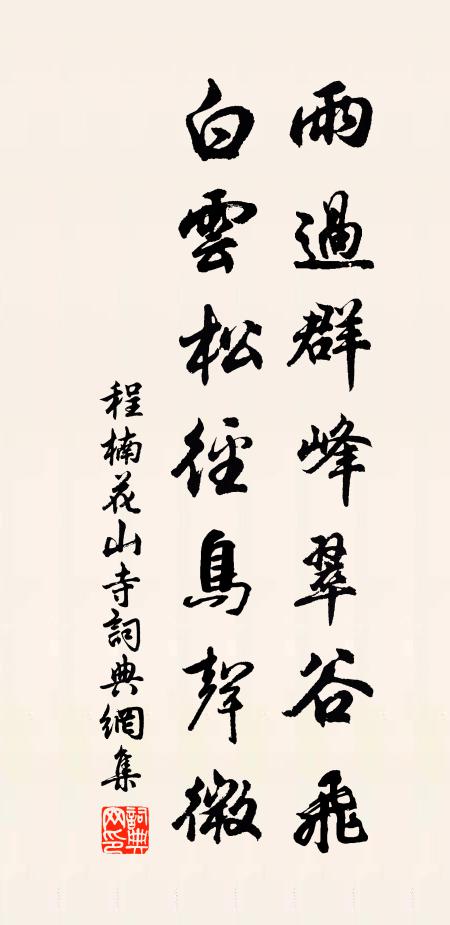 雨過群峰翠谷飛
白雲松徑鳥聲微
程楠花山寺詞典網集
詞典网印